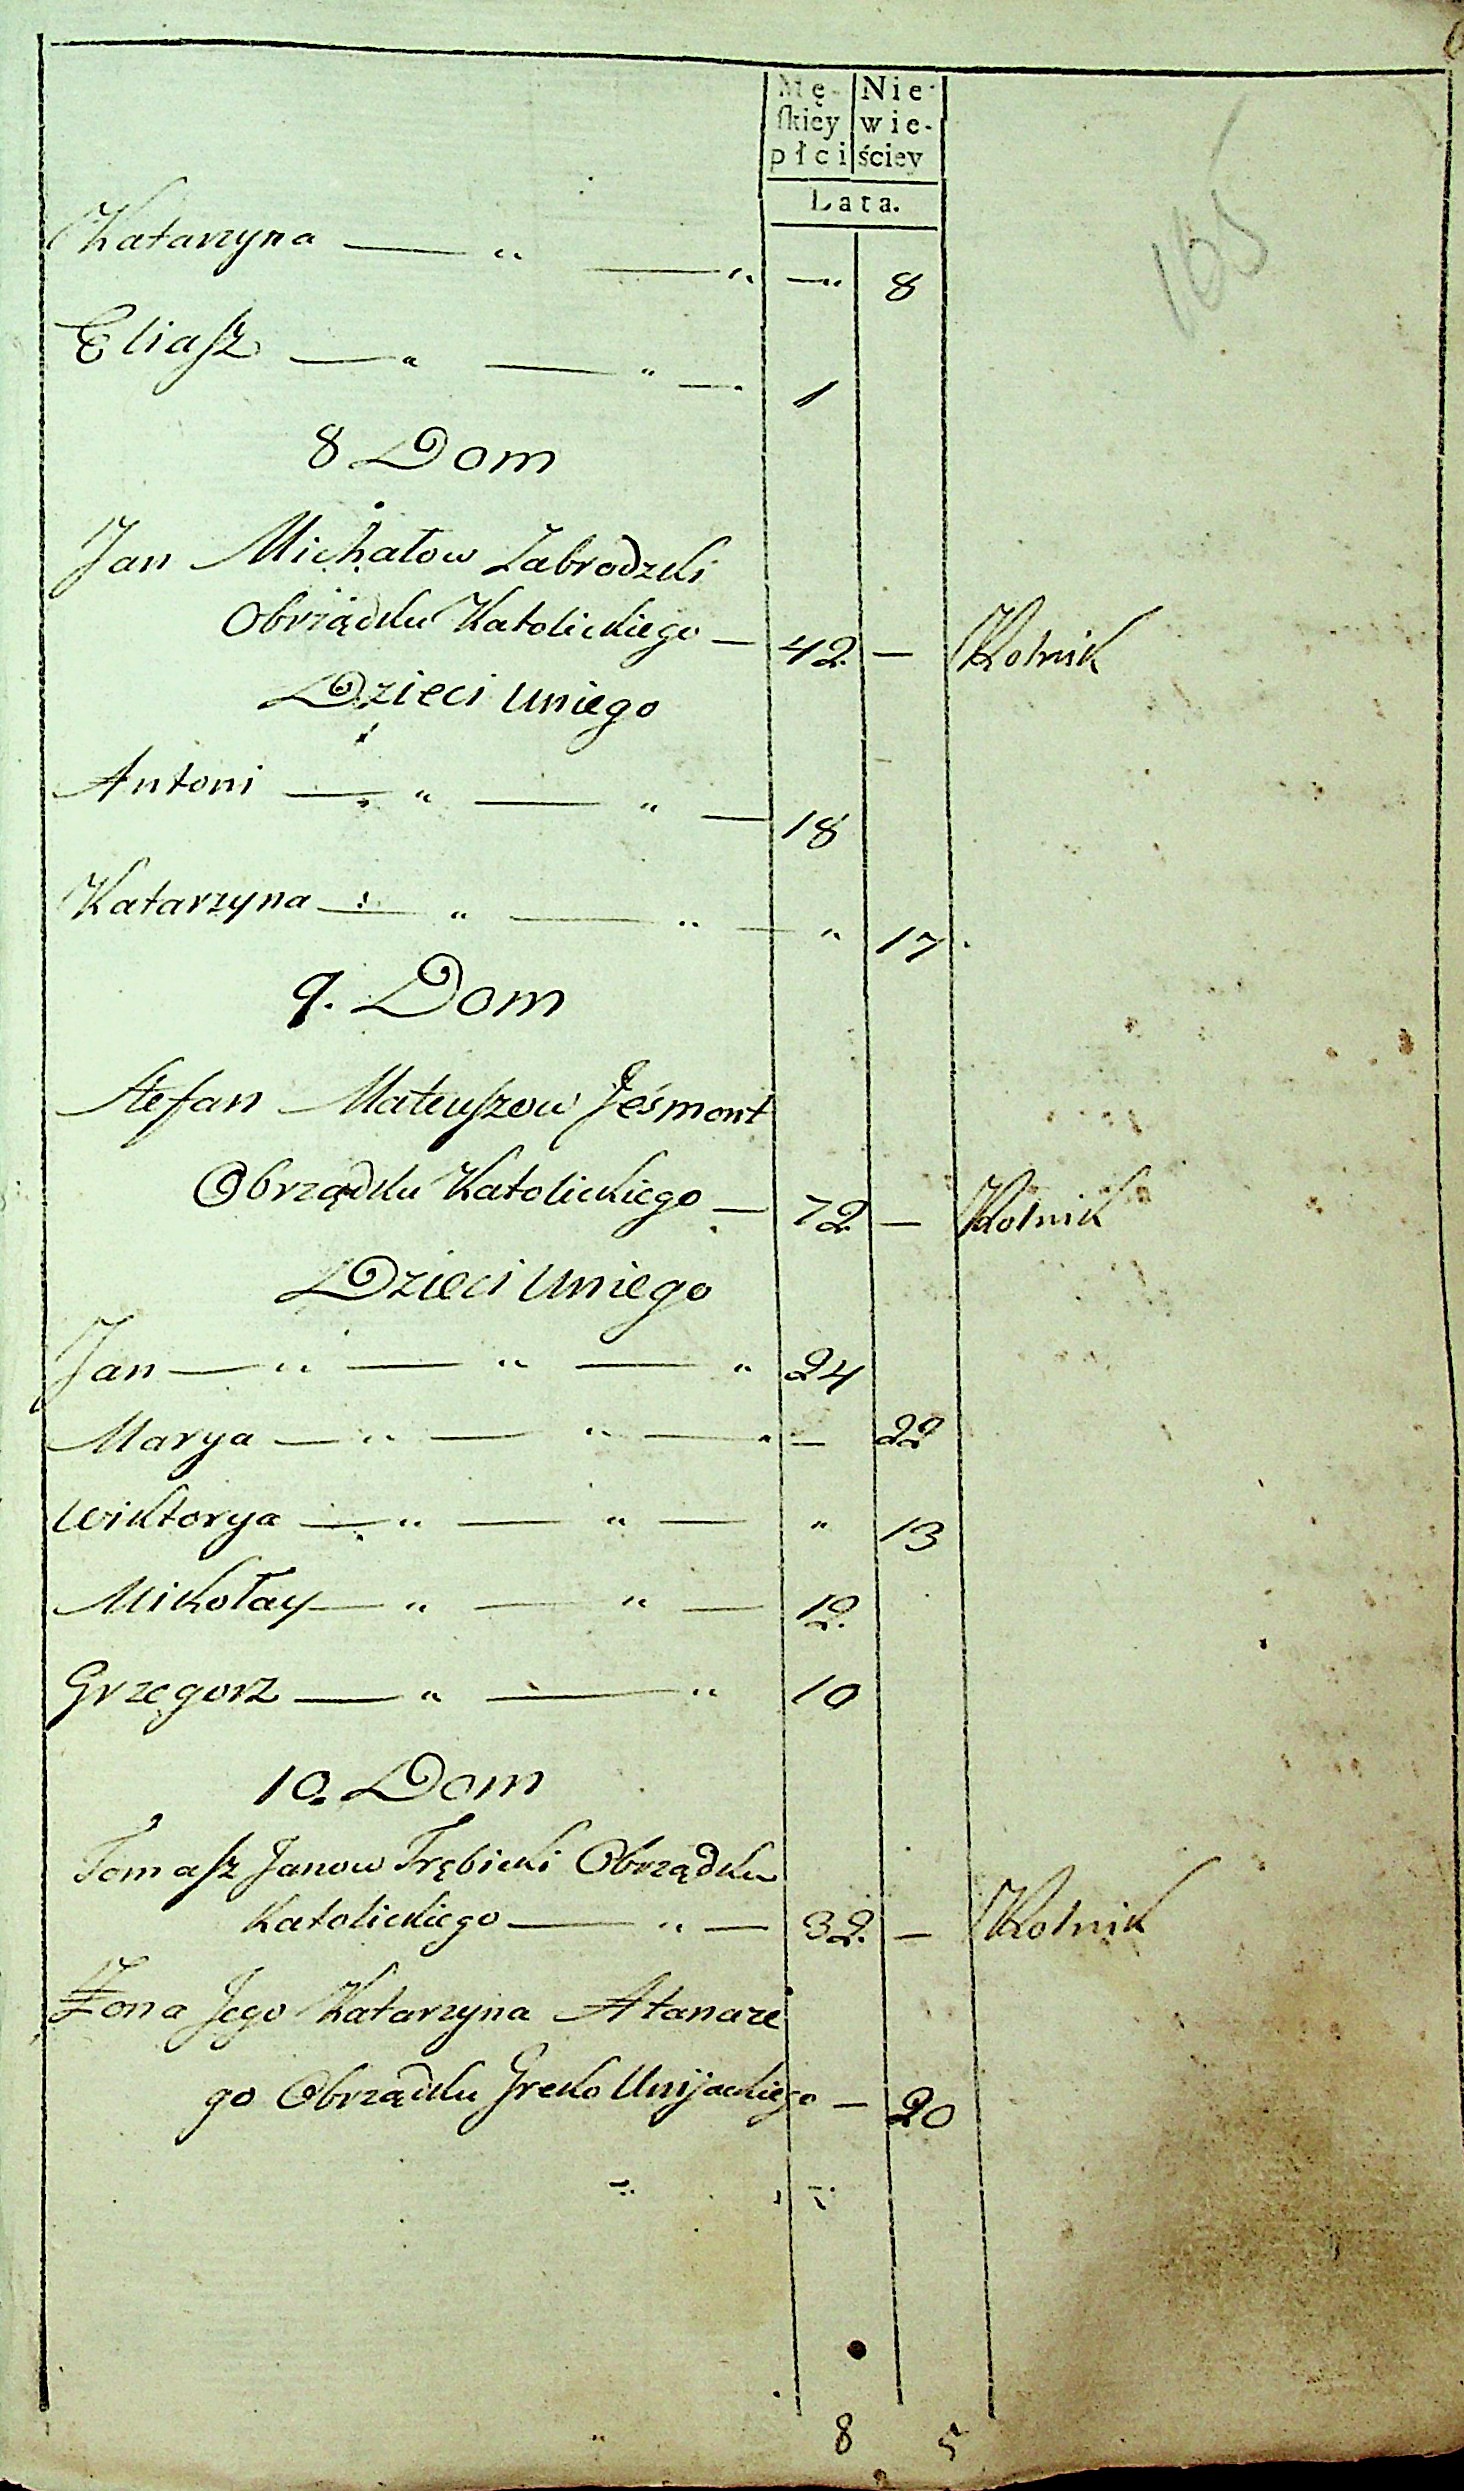 Mę- Nie-
skiey wie-
płci ściey
Lata.
165
Katarzyna — " — " — " 8
Eliasz — " — " — 1
8 Dom
Jan Michałow Zabrodzki
Obrządku Katolickiego — 42 — Rolnik
Dzieci u niego
Antoni — " — " — 18
Katarzyna — " — " — " 17
9. Dom
Stefan Mateuszow Jeśmont
Obrządku Katolickiego — 72 — Rolnik
Dzieci u niego
Jan — " — " — " 24
Marya — " — " — " — 22
Wiktorya — " — " — " 13
Mikołay — " — " — 12
Grzegorz — " — " 10
10. Dom
Tomasz Janow Trębicki Obrządku
Katolickiego — " — 32 — Rolnik
Żona Jego Katarzyna Atanaze
go Obrządku Greko Unijackiego — 20
8 5